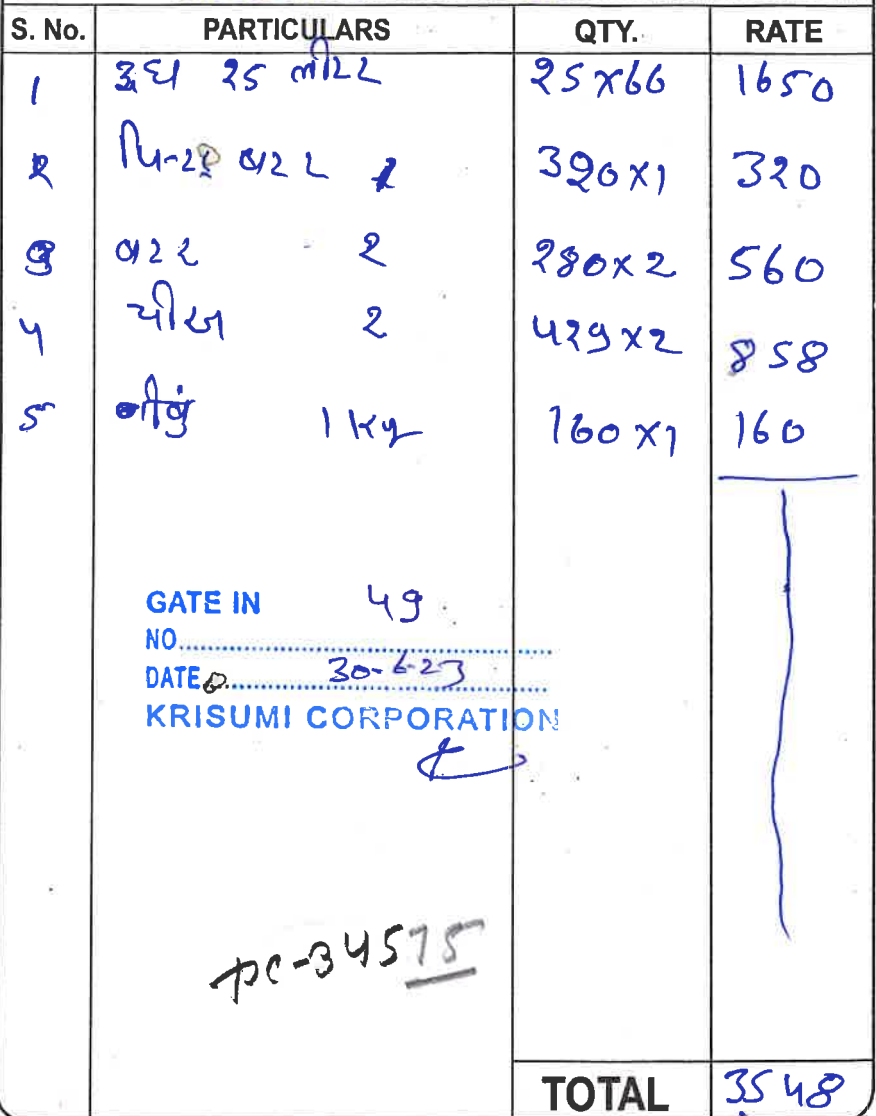 S. No. PARTICULARS QTY. RATE
1 દુધ ૨૫ લીટર 25 x 66 1650
૨ 320 x 1 320
૩ બટર ૨ 280 x 2 560
૪ ચીઝ ૨ 429 x 2 858
5 લીંબું 1 kg 160 x 1 160
GATE IN 49
NO
DATE 30-6-23
KRISUMI CORPORATION
PC-34575
TOTAL 3548